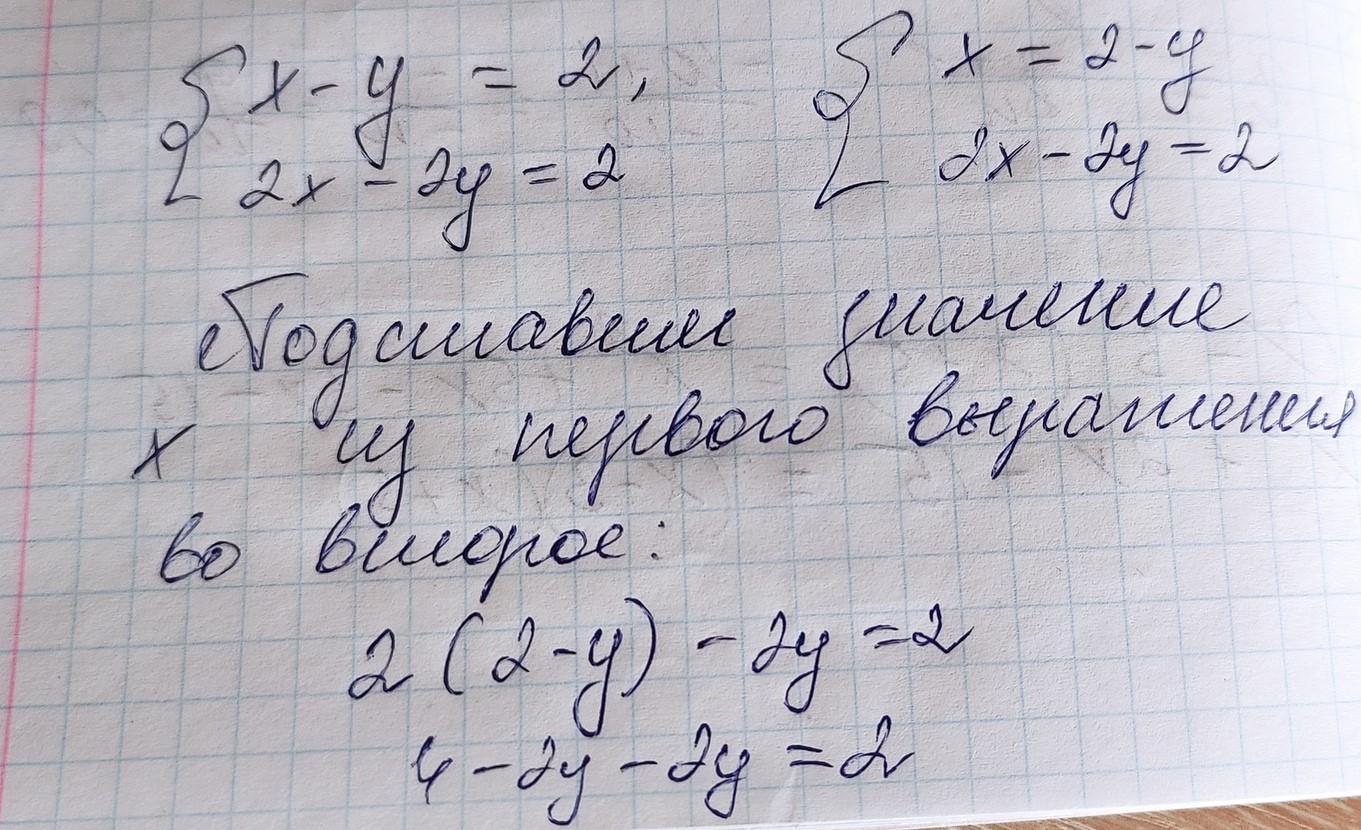 x - y = 2, x = 2 - y
2x - 2y = 2 2x - 2y = 2
Подставим значение
x из первого выражения
во второе:
2 (2 - y) - 2y = 2
4 - 2y - 2y = 2